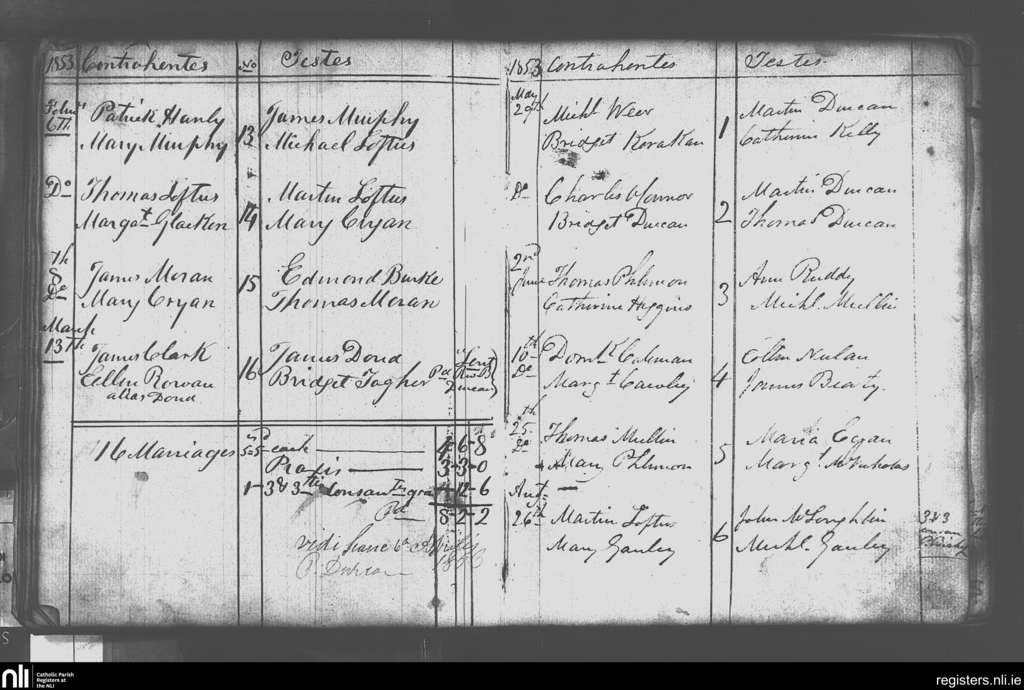 1853 Contrahentes No Testes
Feby 6th Patrick Hanly 13 James Murphy
Mary Murphy Michael Loftus
Do Thomas Loftus 14 Martin Loftus
Margat Glacken Mary Cryan
8th Do James Moran 15 Edmond Burke
Mary Cryan Thomas Moran
March
13th James Clark 16 James Doud
Ellen Rowan Bridget Togher Pd Revd B Duncan
alias Doud
16 Marriages 5s-5d each 4-6-8
Proxis 3-3-0
1-3 & 3th Consanty 12-6
Pd 8-2-2
vidi
P. Durcan
1853 Contrahentes Testes
May
29th Michl Weer 1 Martin Duncan
Bridget Catherine Kelly
Do Charles O'Connor 2 Martin Duncan
Bridget Duncan Thomas Duncan
2nd
June Thomas Phlunon 3 Ann Ruddy
Catherine Higgins Michl. Mullin
10th
Do Domk Coleman 4 Ellen Nulan
Margt Cawley James Beaty.
25th
Do Thomas Mullin 5 Maria Egan
Mary Phlunon Margt. McNicholas
Aut.
26th Martin Loftus 6 John McLoughlin 3 & 3
Mary Ganley Michl. Ganley
nli Catholic Parish
Registers at
the NLI
registers.nli.ie